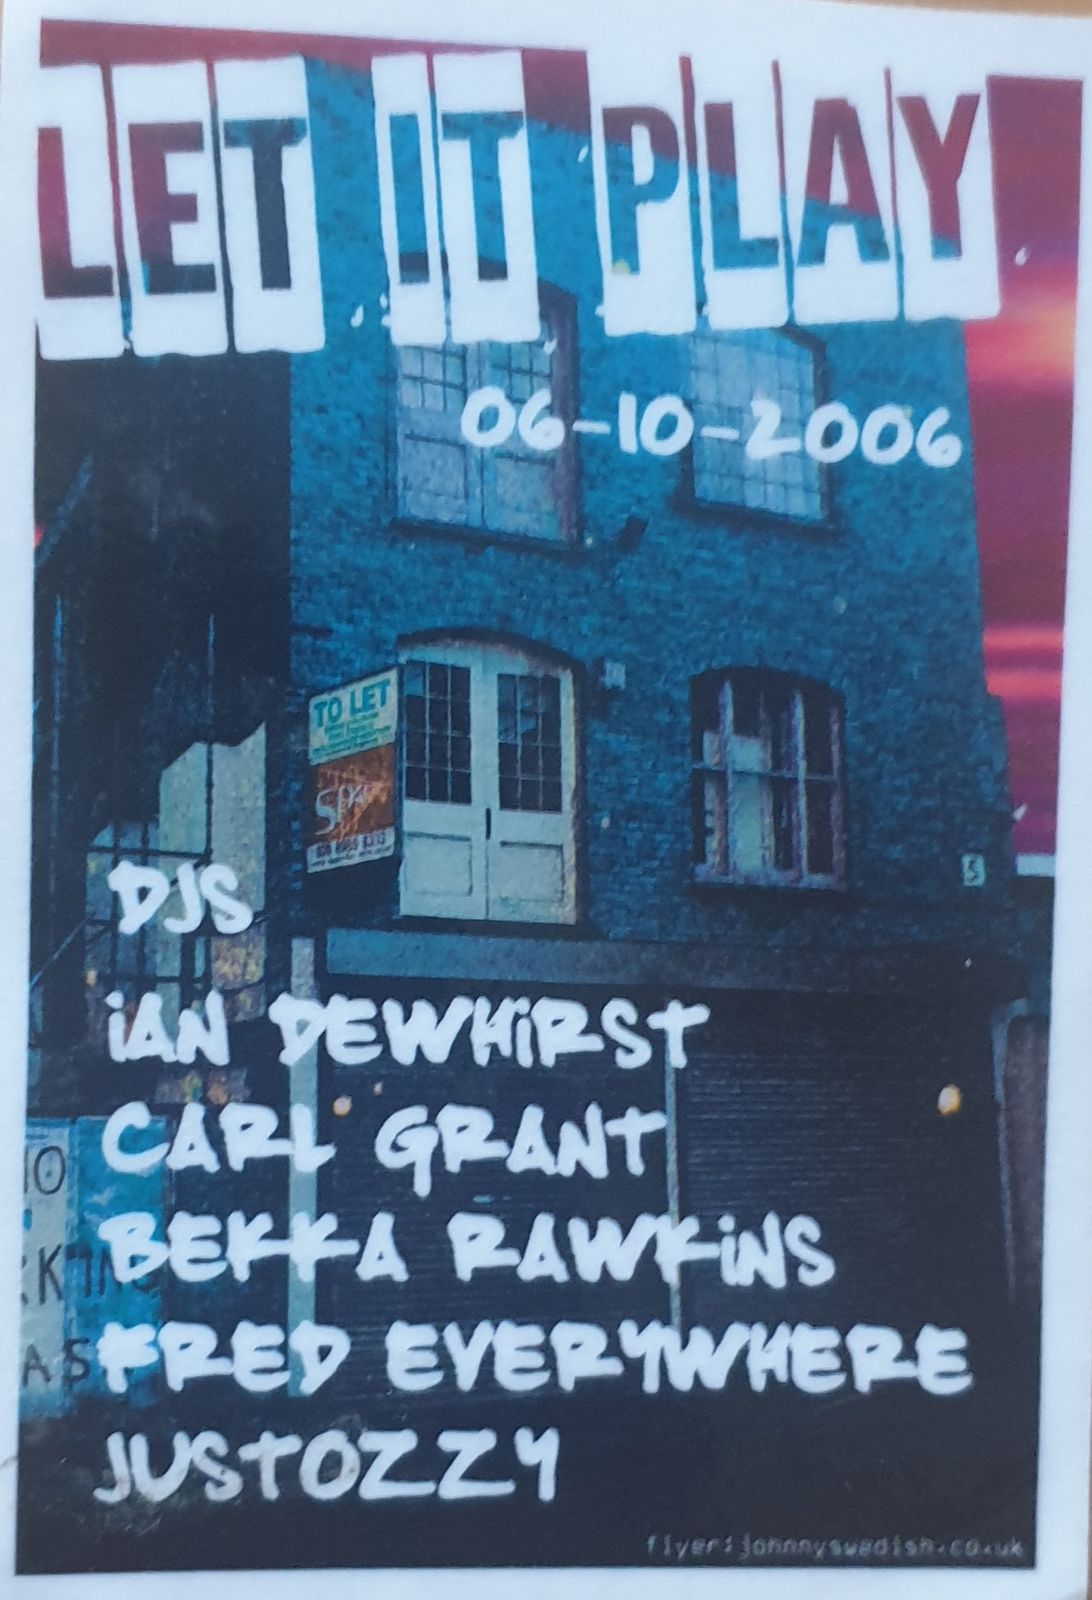 LET IT PLAY
06-10-2006
TO LET
5
DJS
iAN DEWHiRST
CARL GRANT
BEKKA RAWKiNS
FRED EVERYWHERE
JUSTOZZY
flyer:johnnyswedish.co.uk